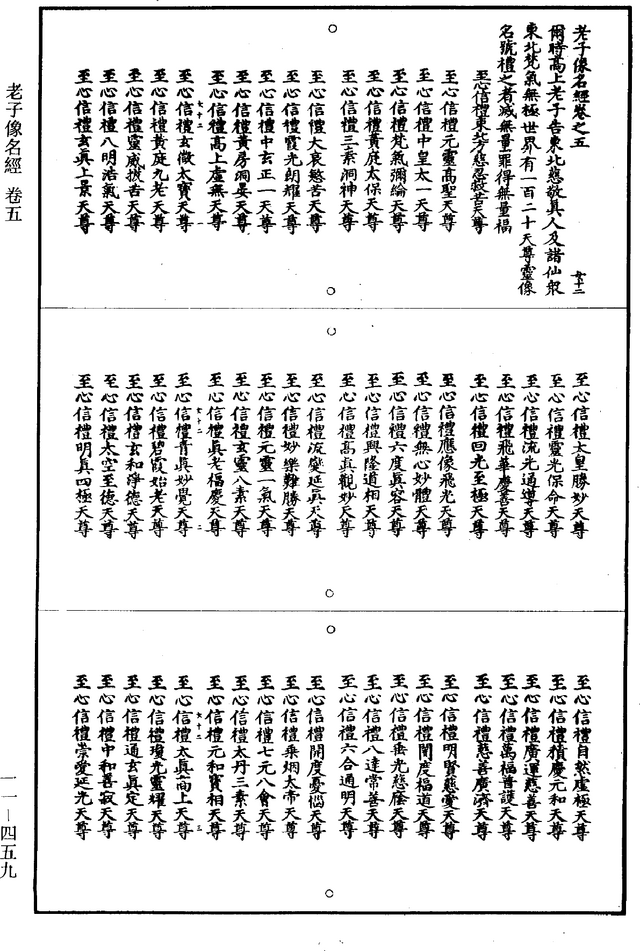 老子像名經卷之五
女十二
爾時高上老子告東北慈敬真人及諸仙衆
東北梵氣無極世界有一百二十天尊靈像
名號禮之者滅無量罪得無量福
至心信禮東方慈忍救苦天尊
至心信禮元靈高聖天尊
至心信禮中皇太一天尊
至心信禮梵氣彌綸天尊
至心信禮黃庭太保天尊
至心信禮三素洞神天尊
至心信禮大哀愍苦天尊
至心信禮霞光朗耀天尊
至心信禮中玄正一天尊
至心信禮黃房洞晏天尊
至心信禮高上虛無天尊
女十二 一
至心信禮玄微太寶天尊
至心信禮黃庭九老天尊
至心信禮靈威拔苦天尊
至心信禮八明浩氣天尊
至心信禮玄真上景天尊
至心信禮太皇勝妙天尊
至心信禮靈光保命天尊
至心信禮流光通導天尊
至心信禮飛華慶善天尊
至心信禮回光至極天尊
至心信禮應像飛光天尊
至心信禮無心妙體天尊
至心信禮六度真容天尊
至心信禮興隆道相天尊
至心信禮高真觀妙天尊
至心信禮流變延真天尊
至心信禮妙樂難勝天尊
至心信禮元靈一氣天尊
至心信禮玄靈八素天尊
至心信禮真老福慶天尊
女十二 二
至心信禮青真妙覺天尊
至心信禮碧霞始老天尊
至心信禮玄和淨德天尊
至心信禮太空至德天尊
至心信禮明真四極天尊
至心信禮自然虛極天尊
至心信禮積慶元和天尊
至心信禮廣運慈善天尊
至心信禮萬福普護天尊
至心信禮慈善廣濟天尊
至心信禮明賢慈愛天尊
至心信禮開度福道天尊
至心信禮垂光慈蔭天尊
至心信禮八達常善天尊
至心信禮六合通明天尊
至心信禮開度憂惱天尊
至心信禮乘烟太帝天尊
至心信禮七元八會天尊
至心信禮太丹三素天尊
至心信禮元和寶相天尊
女十二 三
至心信禮太真高上天尊
至心信禮瓊光靈耀天尊
至心信禮通玄真定天尊
至心信禮中和善寂天尊
至心信禮崇愛延光天尊
老子像名經 卷五
一一—四五九